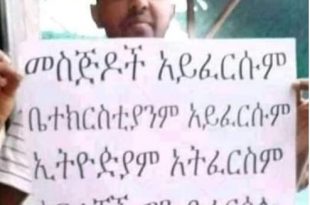 መስጅዶች አይፈርሱም
ቤተክርስቲያንም አይፈርሱም
ኢትዮድያም አትፈርስም